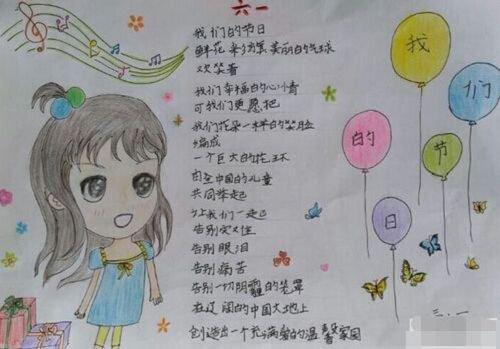 六一
我们的节日
鲜花 美丽的气球
欢笑着
我们幸福的心情
可我们更愿把
我们花朵一样的笑脸
编成
一个巨大的花环
由全中国的儿童
共同举起
让我们一起
告别
告别 眼泪
告别 痛苦
告别一切阴霾的笼罩
在辽阔的中国大地上
创造出一个充满爱的温馨家园
找
们
的
节
日
三.一